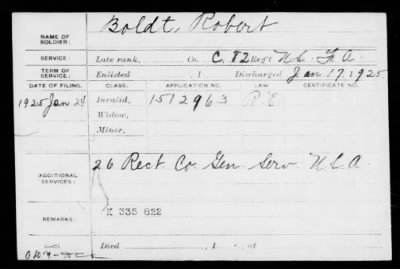 NAME OF SOLDIER: Boldt, Robert
SERVICE: Late rank, Co. C. 82 Reg't U.S. F.A.
TERM OF SERVICE: Enlisted , 1 Discharged Jan 17, 1925
DATE OF FILING. CLASS. APPLICATION NO. LAW. CERTIFICATE NO.
1925 Jan 24 Invalid, 1512963 R E
Widow,
Minor,
ADDITIONAL SERVICES: 26 Rect. Co. Gen. Serv. U.S.A.
REMARKS: K 335 822
Died , 1 , at